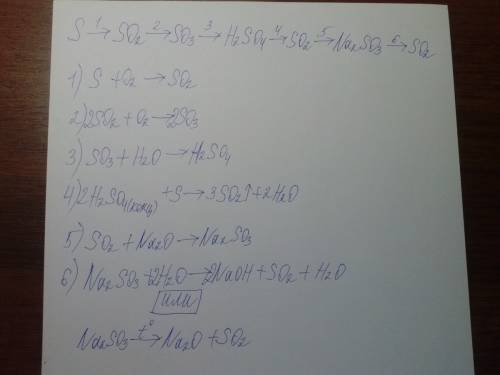 S —1→ SO₂ —2→ SO₃ —3→ H₂SO₄ —4→ SO₂ —5→ Na₂SO₃ —6→ SO₂
1) S + O₂ → SO₂
2) 2SO₂ + O₂ → 2SO₃
3) SO₃ + H₂O → H₂SO₄
4) 2H₂SO₄(конц) + S → 3SO₂↑ + 2H₂O
5) SO₂ + Na₂O → Na₂SO₃
6) Na₂SO₃ + 2H₂O → 2NaOH + SO₂ + H₂O
или
Na₂SO₃ —t°→ Na₂O + SO₂